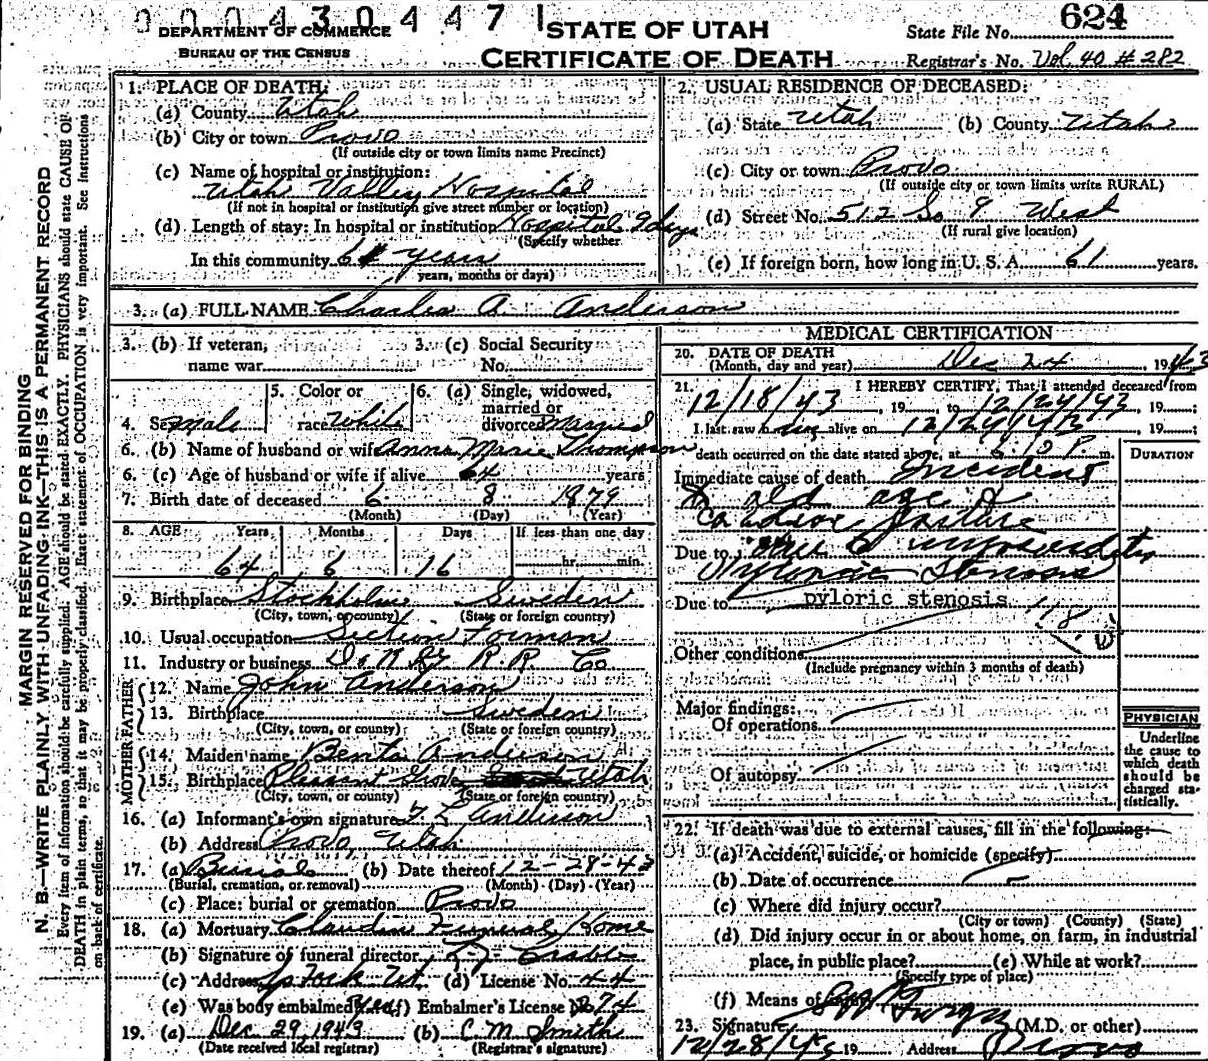 00043044 71
DEPARTMENT OF COMMERCE
BUREAU OF THE CENSUS
STATE OF UTAH
CERTIFICATE OF DEATH
State File No. 624
Registrar's No. Vol. 40 # 282
MARGIN RESERVED FOR BINDING
N. B.—WRITE PLAINLY WITH UNFADING INK—THIS IS A PERMANENT RECORD
Every item of information should be carefully supplied. AGE should be stated EXACTLY. PHYSICIANS should state CAUSE OF
DEATH in plain terms, so that it may be properly classified. Exact statement of OCCUPATION is very important. See instructions
on back of certificate.
1. PLACE OF DEATH:
(a) County Utah
(b) City or town Provo
(If outside city or town limits name Precinct)
(c) Name of hospital or institution:
Utah Valley Hospital
(If not in hospital or institution give street number or location)
(d) Length of stay: In hospital or institution Hospital 9 days
(Specify whether
In this community 61 years
years, months or days)
2. USUAL RESIDENCE OF DECEASED:
(a) State Utah (b) County Utah
(c) City or town Provo
(If outside city or town limits write RURAL)
(d) Street No. 512 So 9 West
(If rural give location)
(e) If foreign born, how long in U. S. A. 61 years.
3. (a) FULL NAME Charles A. Anderson
3. (b) If veteran,
name war
3. (c) Social Security
No.
4. Sex male
5. Color or
race White
6. (a) Single, widowed,
married or
divorced Married
6. (b) Name of husband or wife Anna Marie Thompson
6. (c) Age of husband or wife if alive 64 years
7. Birth date of deceased 6 8 1879
(Month) (Day) (Year)
8. AGE Years Months Days If less than one day
64 6 16 hr. min.
9. Birthplace Stockholm Sweden
(City, town, or county) (State or foreign country)
10. Usual occupation Section Forman
11. Industry or business D. & R. G. R. R. Co
FATHER
12. Name John Anderson
13. Birthplace Sweden
(City, town, or county) (State or foreign country)
MOTHER
14. Maiden name Benta Anderson
15. Birthplace Pleasant Grove Utah
(City, town, or county) (State or foreign country)
16. (a) Informant's own signature F L Anderson
(b) Address Provo, Utah
17. (a) Burial (b) Date thereof 12-28-43
(Burial, cremation, or removal) (Month) (Day) (Year)
(c) Place: burial or cremation Provo
18. (a) Mortuary Claudin Funeral Home
(b) Signature of funeral director
(c) Address Sp Fork Ut. (d) License No. 44
(e) Was body embalmed Yes (f) Embalmer's License No 274
19. (a) Dec 29, 1943 (b) C M Smith
(Date received local registrar) (Registrar's signature)
MEDICAL CERTIFICATION
20. DATE OF DEATH
(Month, day and year) Dec 24 1943
21. I HEREBY CERTIFY, That I attended deceased from
12/18/43, 19 to 12/24/43, 19 ;
I last saw him alive on 12/24/43, 19 ;
death occurred on the date stated above, at P. m.
DURATION
Immediate cause of death Incident
to old age &
cardiac failure
Due to due to myocarditis
Pyloric stenosis
Due to pyloric stenosis
118
Other conditions
(Include pregnancy within 3 months of death)
Major findings:
Of operations
Of autopsy
PHYSICIAN
Underline
the cause to
which death
should be
charged sta-
tistically.
22. If death was due to external causes, fill in the following:
(a) Accident, suicide, or homicide (specify)
(b) Date of occurrence
(c) Where did injury occur?
(City or town) (County) (State)
(d) Did injury occur in or about home, on farm, in industrial
place, in public place? (e) While at work?
(Specify type of place)
(f) Means of
23. Signature (M.D. or other)
12/28/43 19 Address Provo